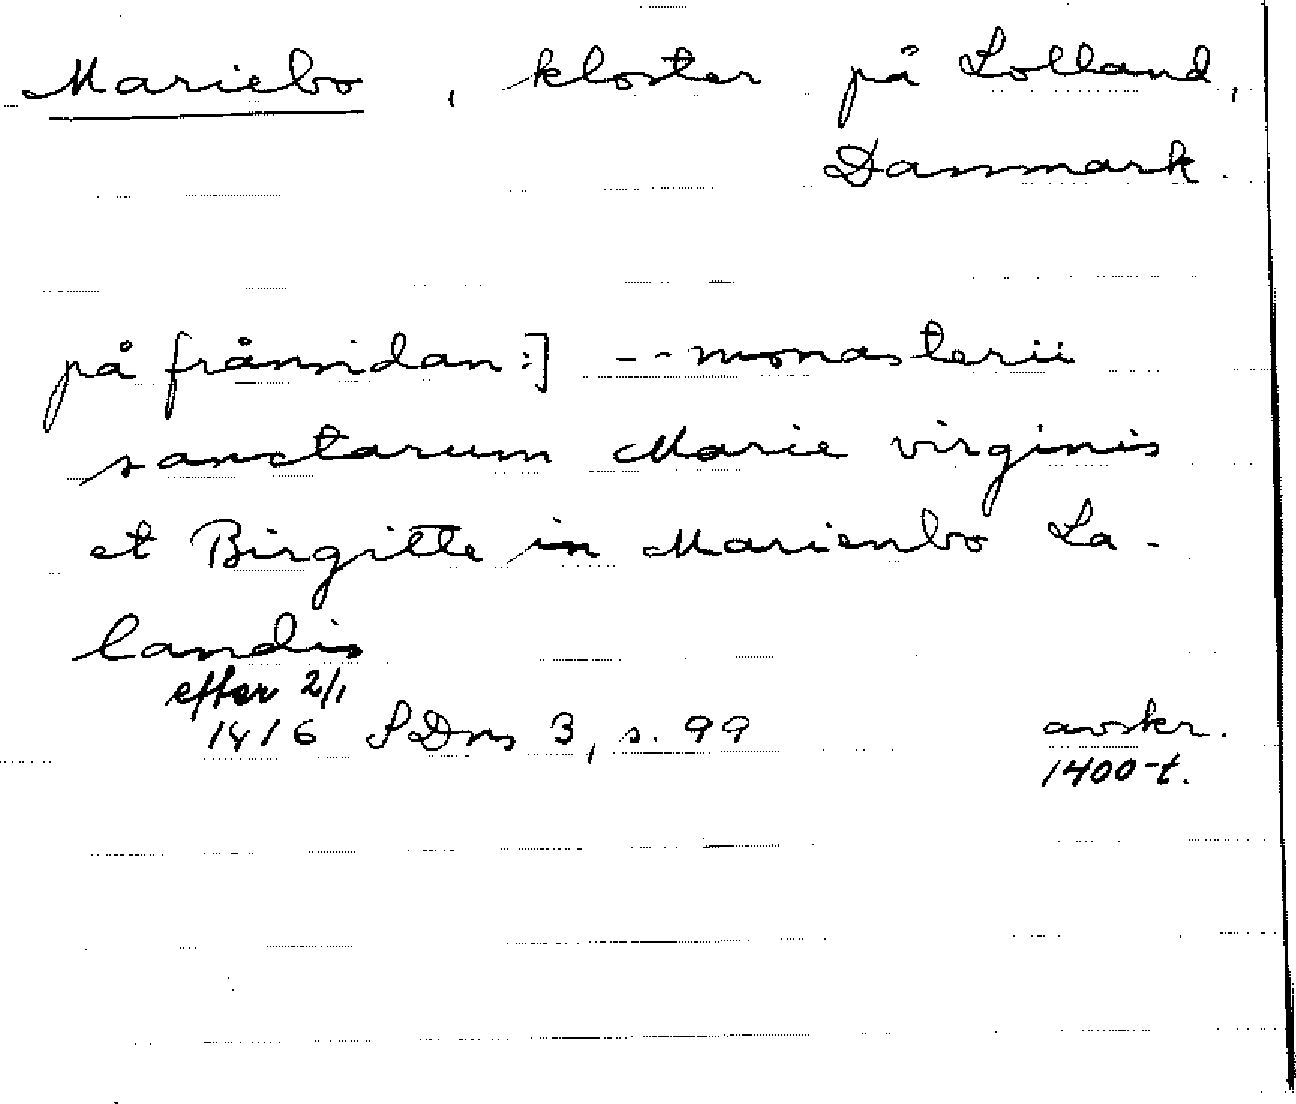 Mariebo, kloster på Lolland,
Danmark.
på frånsidan:] --monasterii
sanctarum Marie virginis
et Birgitte in Marienbo La-
landis
efter 2/1
1416 SDns 3, s. 99 avskr.
1400-t.